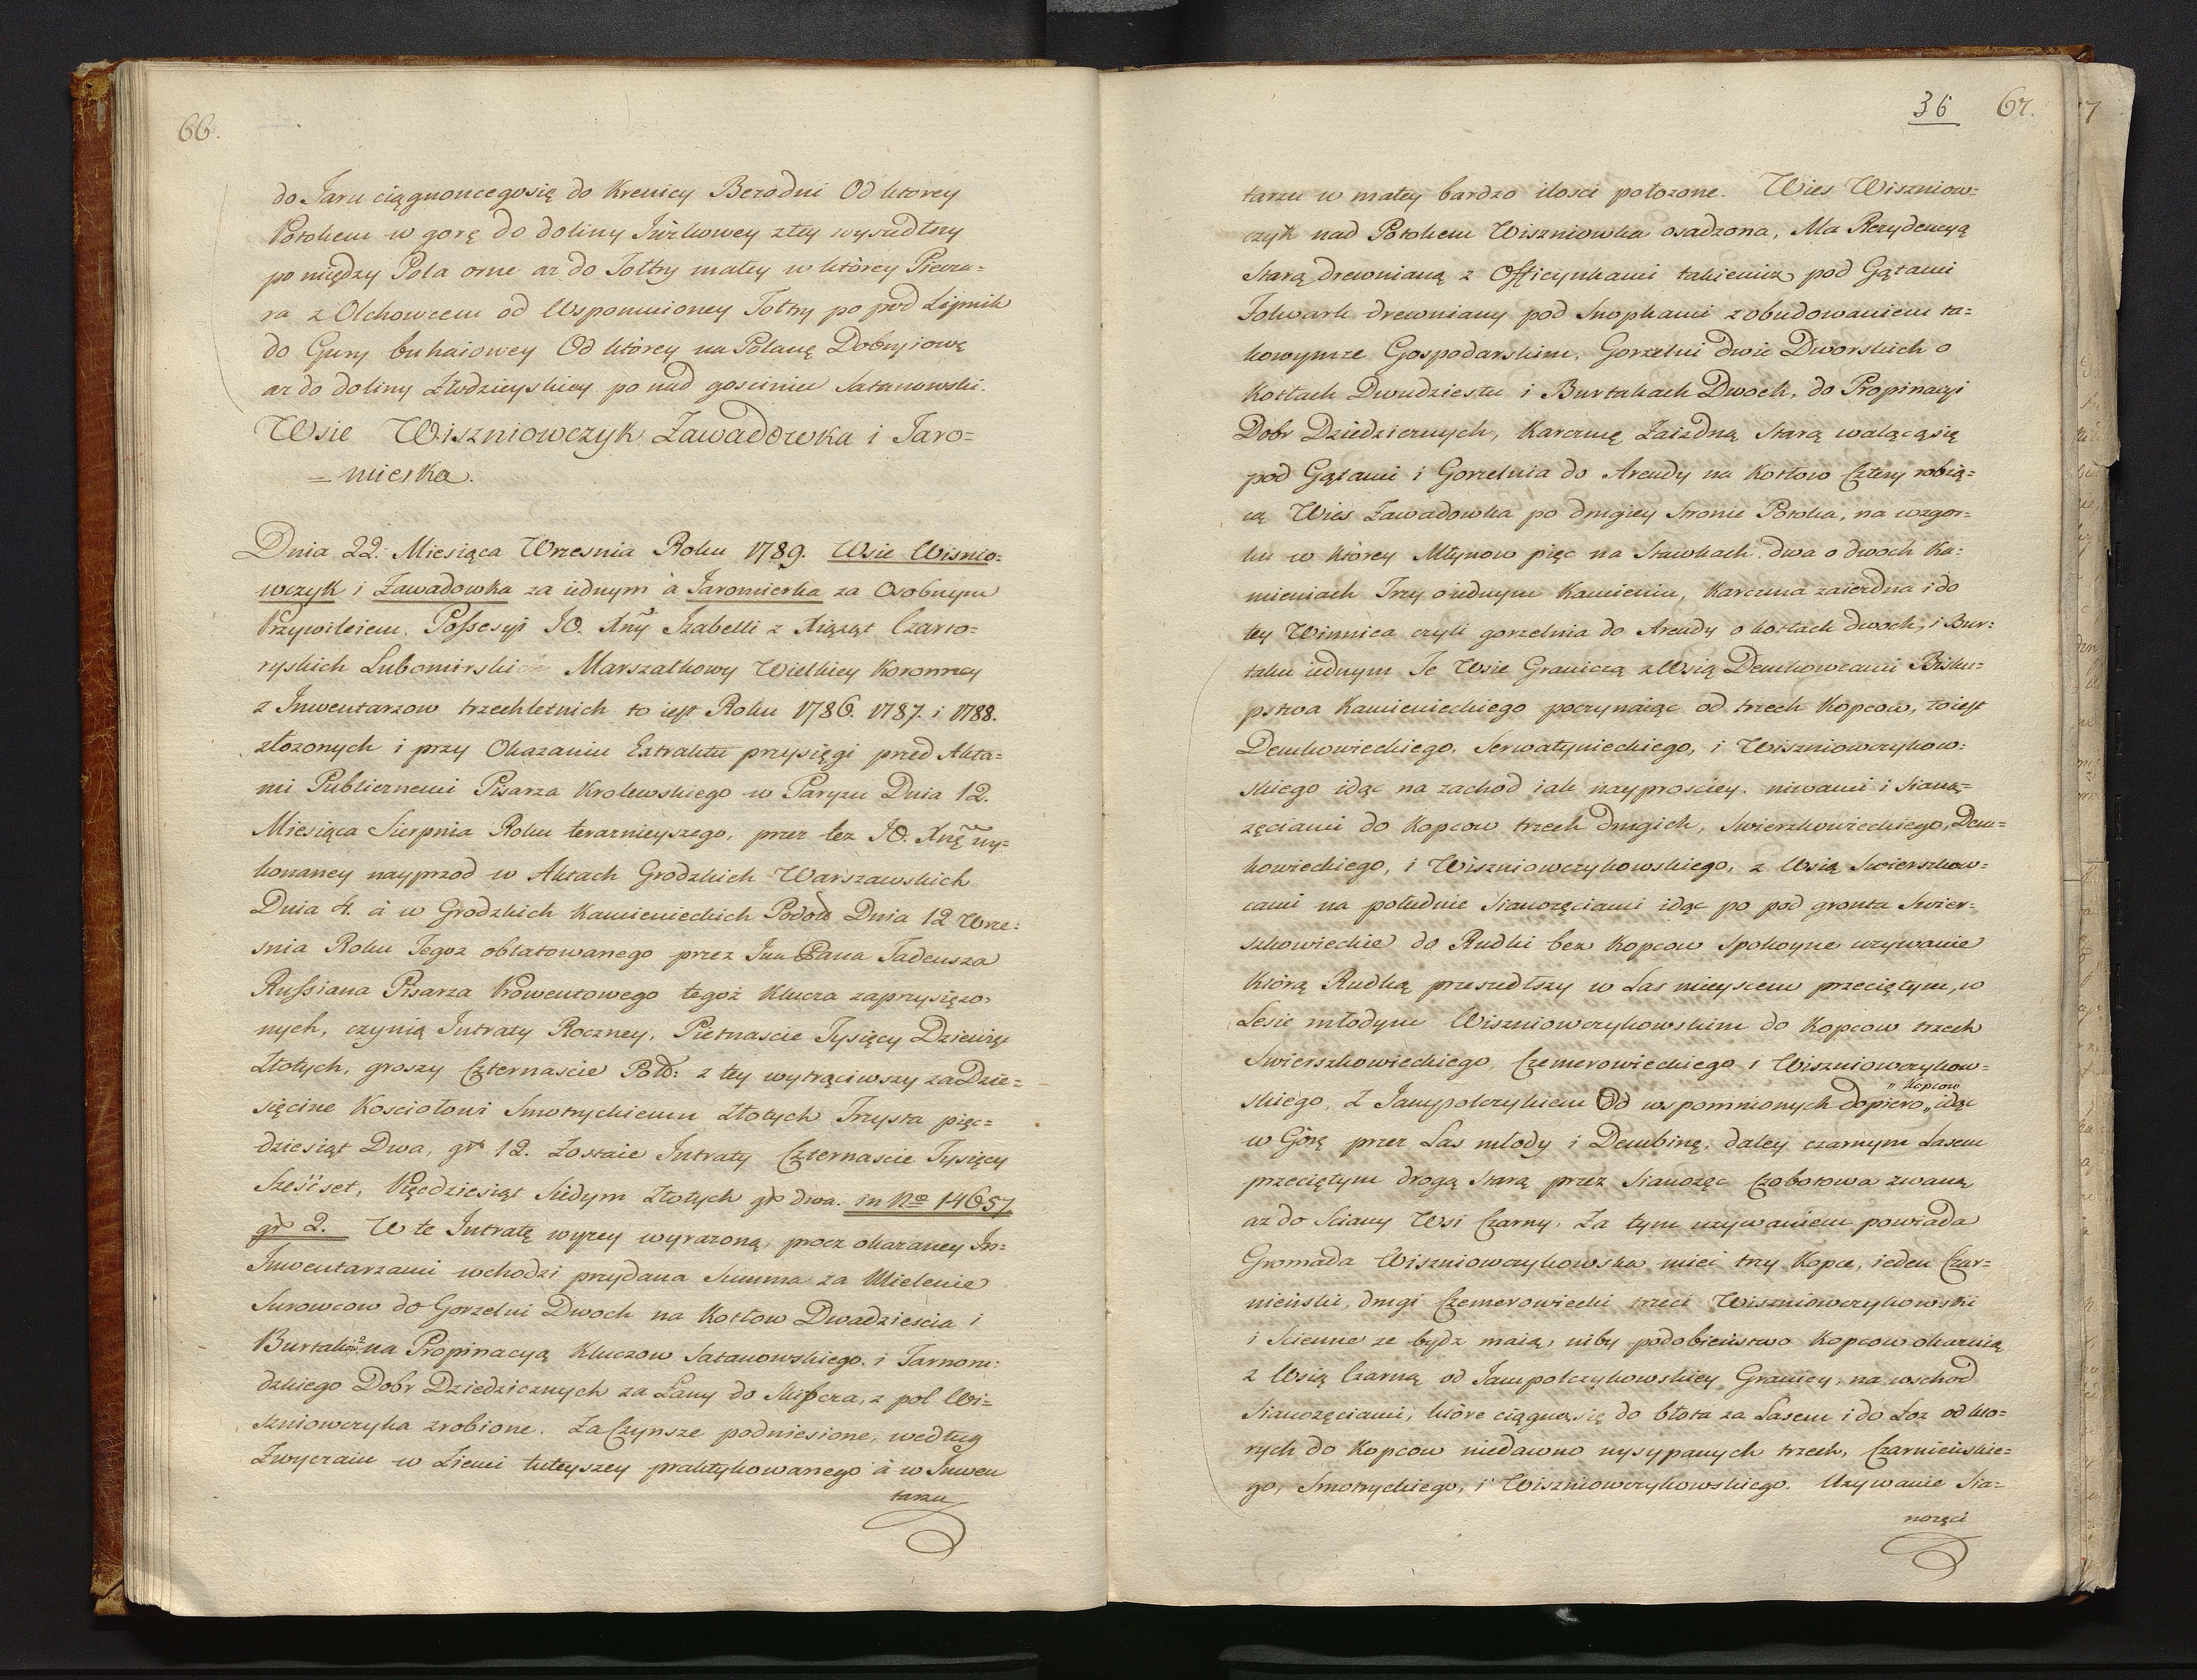 66.
do Jaru ciągnoncegosię do Krenicy Bezodni Od ktorey
Potokem w gorę do doliny Jurkowey ztey wyszedłszy
po między Pola orne az do Tołtry małey w ktòrey Piecza-
ra z Olchowcem od Wspomnioney Tołtry po pod Lipnik
do Gury buhaiowey Od ktòrey na Polanę Dobryiowę
az do doliny Złodzieyskiey po nad gosciniec Satanowski.
Wsie Wiszniowczyk Zawadowka i Jaro=
=mierka.
Dnia 22. Miesiąca Wrzesnia Roku 1789. Wsie Wisnio-
wczyk i Zawadowka za iednym à Jaromierka za Osobnym
Przywileiem. Possesyi JO. Xny Izabelli z Xiąząt Czarto-
ryskich Lubomirski Marszałkowy Wielkiey Koronney
z Inwentarzow trzechletnich to iest Roku 1786. 1787. i 1788.
złozonych i przy Okazaniu Extraktu przysięgi przed Akta=
mi Publicznemi Pisarza Krolewskiego w Paryzu Dnia 12.
Miesiąca Sierpnia Roku terazneyszego, przez tez JO. Xnę wy=
konaney nayprzod w Aktach Grodzkich Warszawskich
Dnia 4. à w Grodzkich Kamienieckich Podol Dnia 12 Wrze=
snia Roku Tegoz oblatowanego przez Jm Pana Tadeusza
Russiana Pisarza Prowentowego tegoż Klucza zaprzysięzo-
nych, czynią Intraty Roczney, Pietnascie Tysięcy Dziewięć
Złotych, groszy Czternascie Pol: z tey wytrąciwszy za Dzie=
sięcine Kosciołowi Smotryckiemu Złotych Trzysta pięc=
dziesiąt Dwa, gr 12. Zostaie Intraty Czternascie Tysięcy
Sześćset, Pięcdziesiąt Siedym Złotych gr dwa. in No 14657
gr 2. W te Intratę wyzey wyrazoną, procz okazaney In=
Inwentarzami wchodzi przydana Summa za Mielenie
Surowcow do Gorzelni Dwoch na Kotłow Dwadziescia i
Burtakow 2 na Propinacyą Kluczow Satanowskiego i Tarnoru=
dzkiego Dobr Dziedzicznych za Łany do z pol Wi=
szniowczyka zrobione. Za Czynsze podniesione, według
Zwyczaiu w Ziemi tuteyszey praktykowanego à w Inwen
tarzu
36 67.
tarzu w małey bardzo ilosci położone. Wies Wiszniow=
czyk nad Potokem Wiszniowka osadzona, Ma Rezydencyą
Starą drewnianą z Officynkami takiemiz pod Gątami
Folwark drewniany pod Snopkami z obudowaniem ta=
kowymze Gospodarskim, Gorzelni dwie Dworskich o
Kotłach Dwudziestu i Burtakach Dwoch, do Propinacyi
Dobr Dziedzicznych, Karczmę Zaizdną Starą walącąsię
pod Gątami i Gorzelnia do Arendy na Kotłow Cztery robią=
cą Wies Zawadowka po drugiey Stronie Potoka, na wzgor=
ku w ktòrey Młynow pięc na Stawkach. dwa o dwoch Ka=
mieniach Trzy o iednym Kamieniu, Karczma zaiezdna i do
tey Winnica czyli gorzelnia do Arendy o kotłach dwoch, i Bur=
taku iednym Te Wsie Graniczą z Wsią Demkowcami Bisku=
pstwa Kamienieckiego poczynaiąc od trzech Kopcow, toiest
Demkowieckiego, Serwatynieckiego, i Wiszniowczykow=
skiego idąc na zachod iak nayprosciey. niwami i Siano=
zęciami do Kopcow trzech drugich, Swierzkowieckiego, Dem=
kowieckiego, i Wiszniowczykowskiego, z Wsią Swierszkow=
cami na południe Sianozęciami idąc po pod gronta Swier=
szkowieckie do Rudki bez Kopcow Spokoyne uzywanie
Którą Rudką przeszedłszy w Las mieyscem przeciętym, w
Lesie młodym Wiszniowczykowskim do Kopcow trzech
Swierszkowieckiego, Czemerowieckiego i Wiszniowczykow=
skiego, Z Jampolczykiem Od wspomnionych dopiero „ Kopcow „ idąc
w Górę przez Las młody i Dembinę, daley czarnym Lasem
przeciętym drogą Starą przez Sianozęc Czobotowa zwaną
az do Sciany Wsi Czarny. Za tym uzywaniem powiada
Gromada Wiszniowczykowska mieć trzy Kopce, ieden Czar=
nieński, drugi Czemerowiecki trzeci Wiszniowczykowski
i Scienne ze bydz maią, niby podobieństwo Kopcow okazuią
z Wsią Czarną od Jampolczykowskiey Granicy, na wschod
Sianozęciami, ktòre ciągną się do błota za Lasem i do Łoz od kto=
rych do Kopcow niedawno wysypanych trzech, Czarnieńskie=
go, Smotryckiego, i Wiszniowczykowskiego. Uzywanie Sia=
nozęci